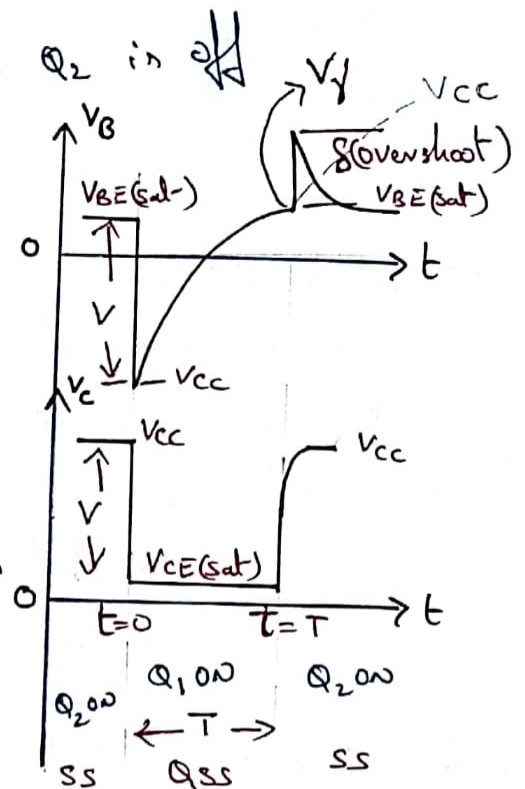 Q2 is off
Vγ
VCC
VB
δ(overshoot)
VBE(sat)
VBE(sat)
0
t
V
– VCC
VC
VCC
VCC
V
VCE(sat)
0
t=0
t=T
t
Q2 ON
Q1 ON
Q2 ON
T
SS
QSS
SS